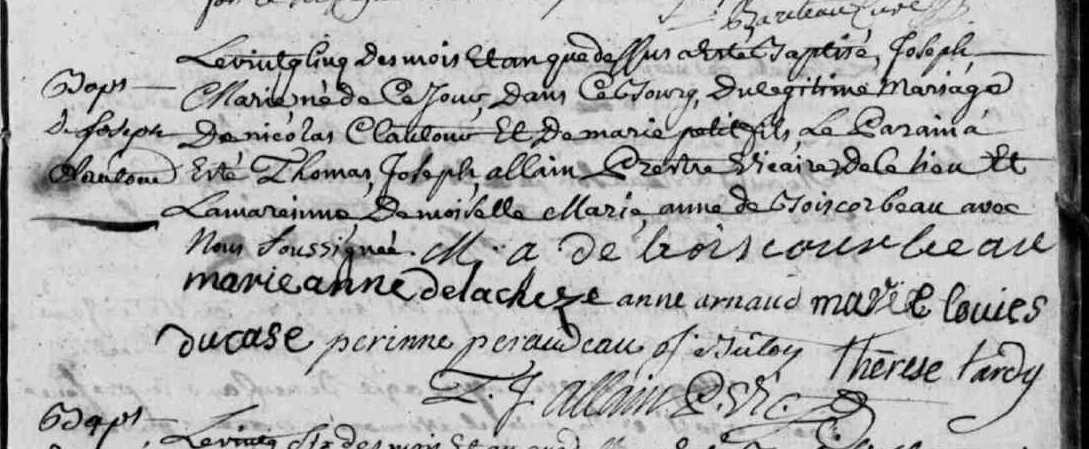 Bariteau Curé
Le vint cinq des mois et an que dessus a esté Baptisé, Joseph,
Bapt
de Joseph
Clautour
Marie né de ce Jour, dans ce Bourg, du legitime Mariage
De nicolas Clautour et De marie petit fils, Le Parain a
Esté Thomas, Joseph, allain Prestre Vicaire de ce lieu Et
La marainne Demoiselle Marie anne de Boiscorbeau avec
Nous soussignée. M. a de boiscourbeau
marie anne de la cheze anne arnaud marie louies
ducase perinne peraudeau thérèse tardy
T. J. allain. P. Vic.
Bapt
Le vint des mois et an que